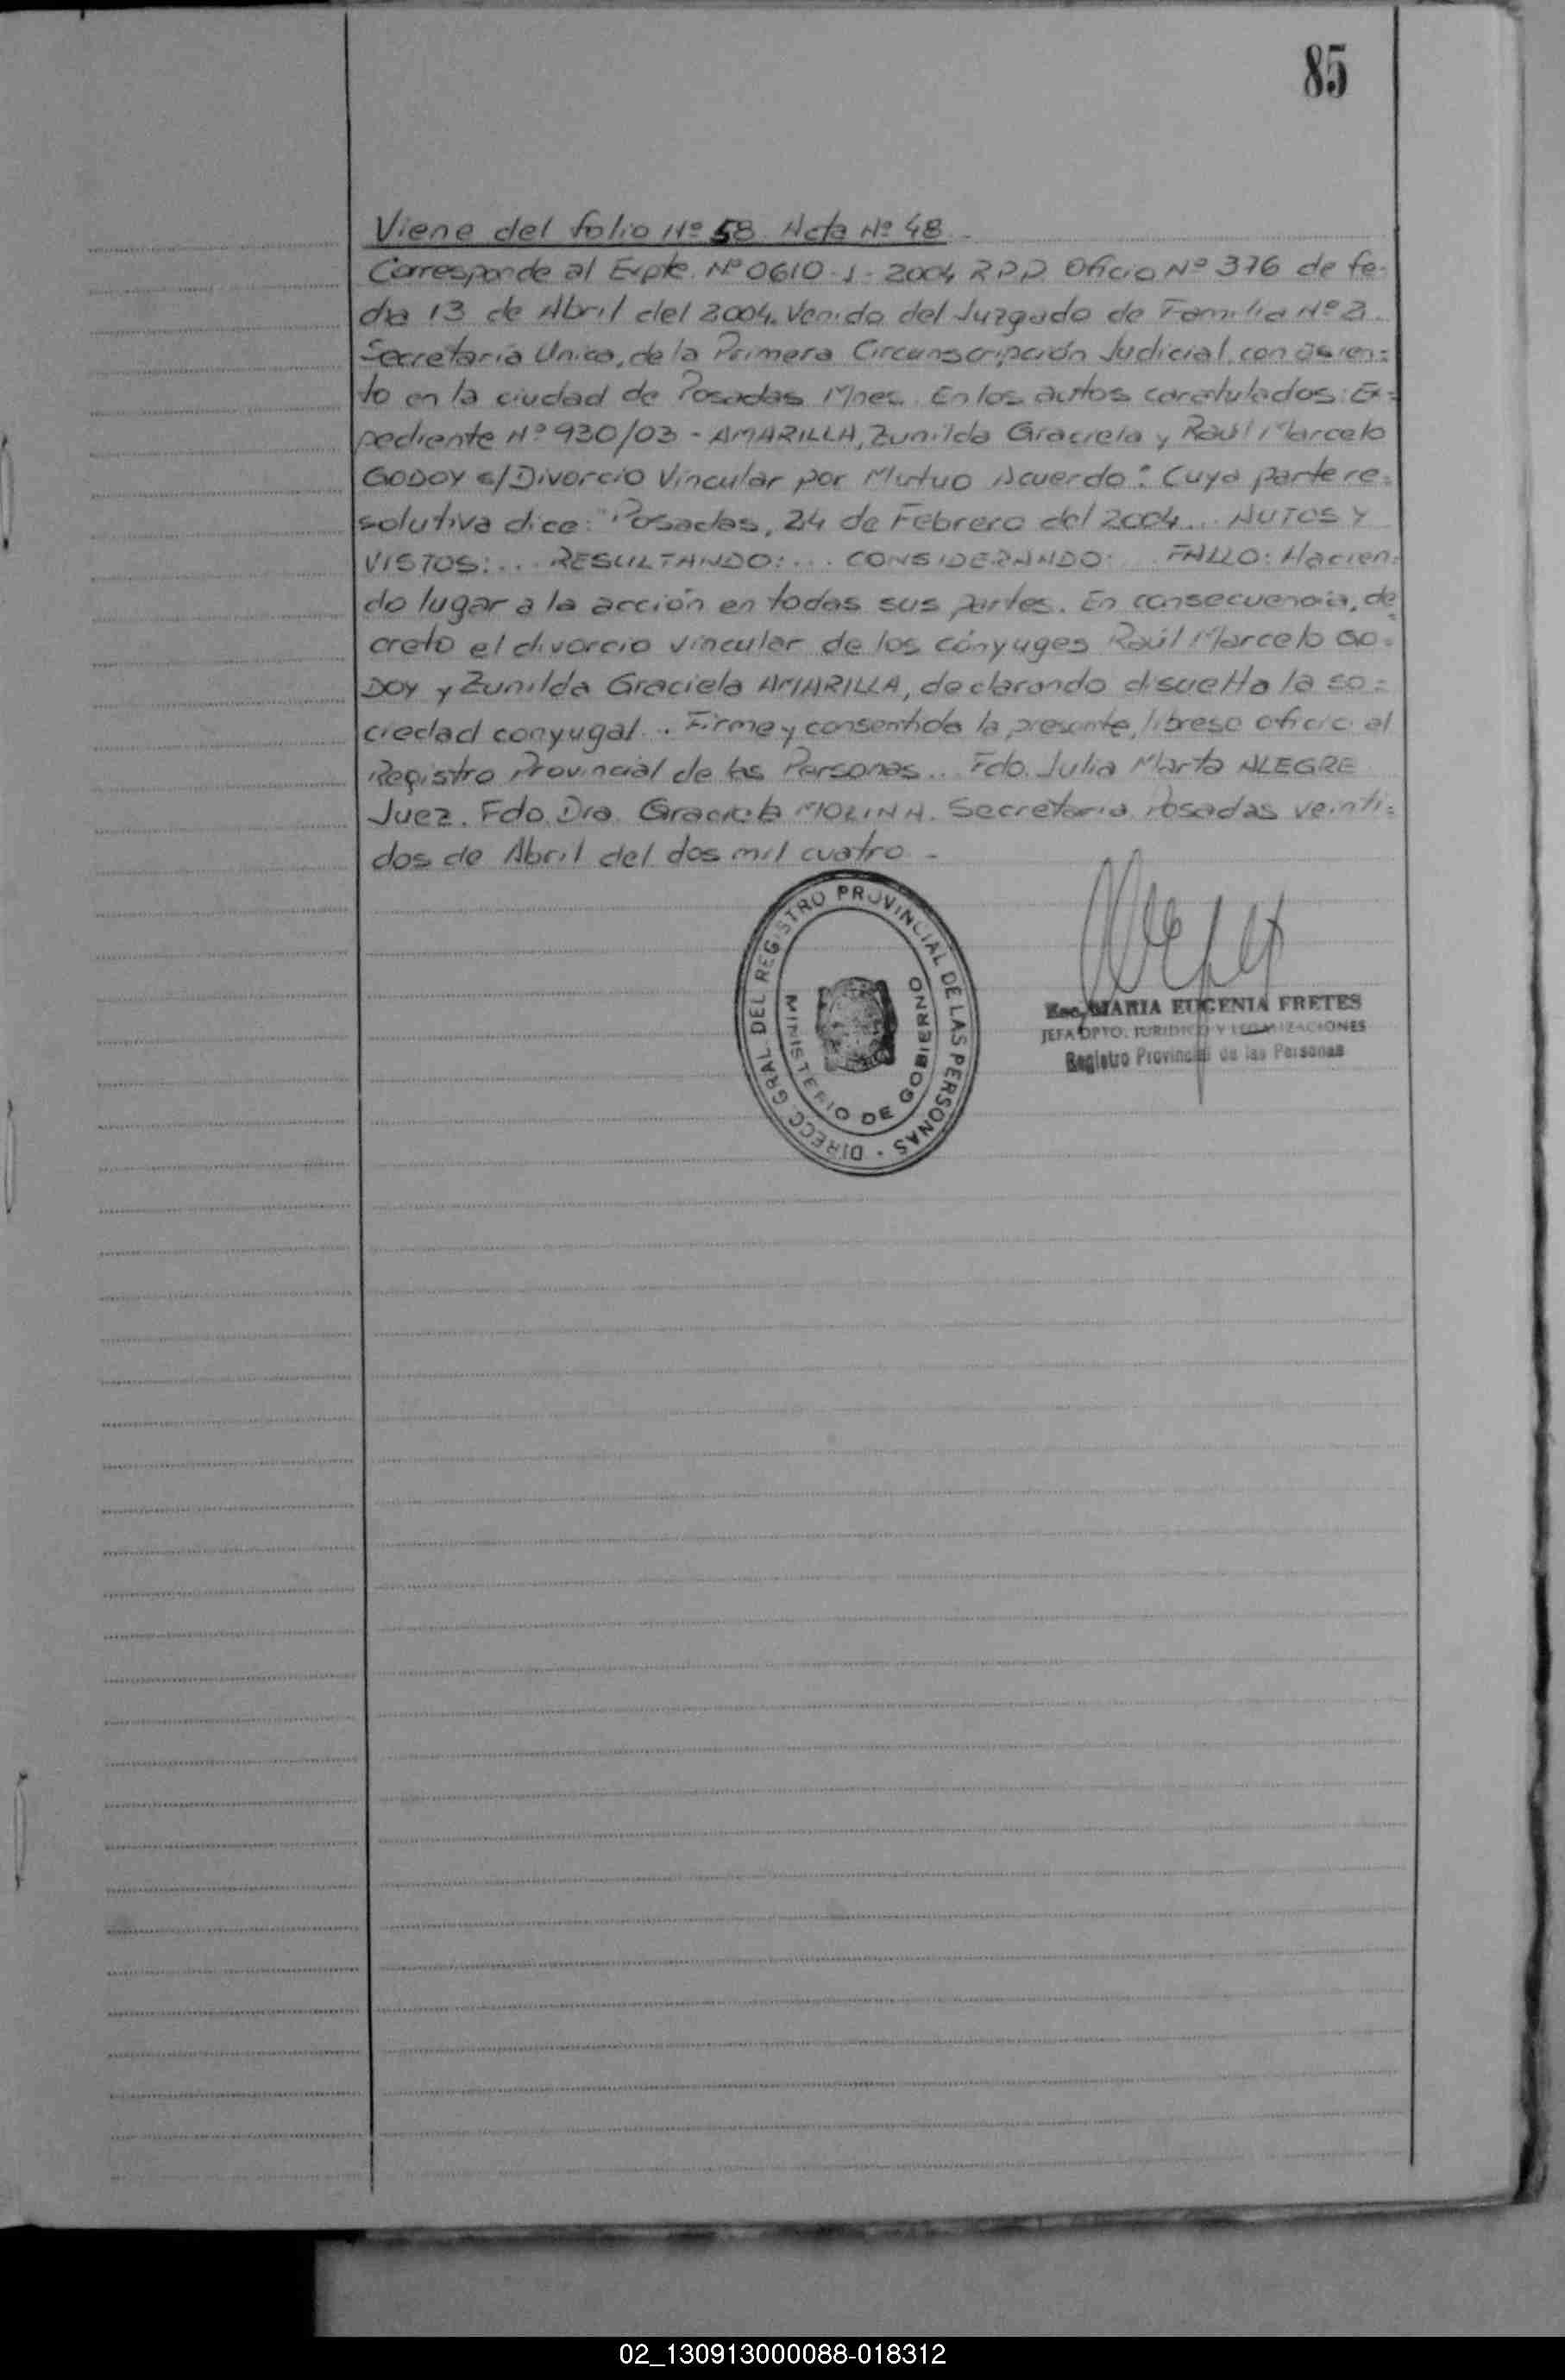 85
Viene del folio Nº 58 Acta Nº 48
Corresponde al Expte. Nº 0610-J-2004 R.P.P. Oficio Nº 376 de fe-
cha 13 de Abril del 2004. Venido del Juzgado de Familia Nº 2
Secretaría Unica, de la Primera Circunscripción Judicial con asien=
to en la ciudad de Posadas Mnes. En los autos caratulados: Ex=
pediente Nº 930/03 - AMARILLA, Zunilda Graciela y Raúl Marcelo
GODOY s/Divorcio Vincular por Mutuo Acuerdo": Cuya parte re=
solutiva dice: "Posadas, 24 de Febrero del 2004... AUTOS Y
VISTOS:... RESULTANDO:... CONSIDERANDO:... FALLO: Hacien=
do lugar a la acción en todas sus partes. En consecuencia, de
creto el divorcio vincular de los cónyuges Raúl Marcelo GO=
DOY y Zunilda Graciela AMARILLA, declarando disuelta la so=
ciedad conyugal... Firme y consentida la presente, librese oficio al
Registro Provincial de las Personas... Fdo. Julia Marta ALEGRE
Juez. Fdo. Dra. Graciela MOLINA. Secretaria Posadas veinti=
dos de Abril del dos mil cuatro -
DIRECC. GRAL. DEL REGISTRO PROVINCIAL DE LAS PERSONAS
MINISTERIO DE GOBIERNO
Esc. MARIA EUGENIA FRETES
JEFA DPTO. JURIDICO Y LEGALIZACIONES
Registro Provincial de las Personas
02_130913000088-018312